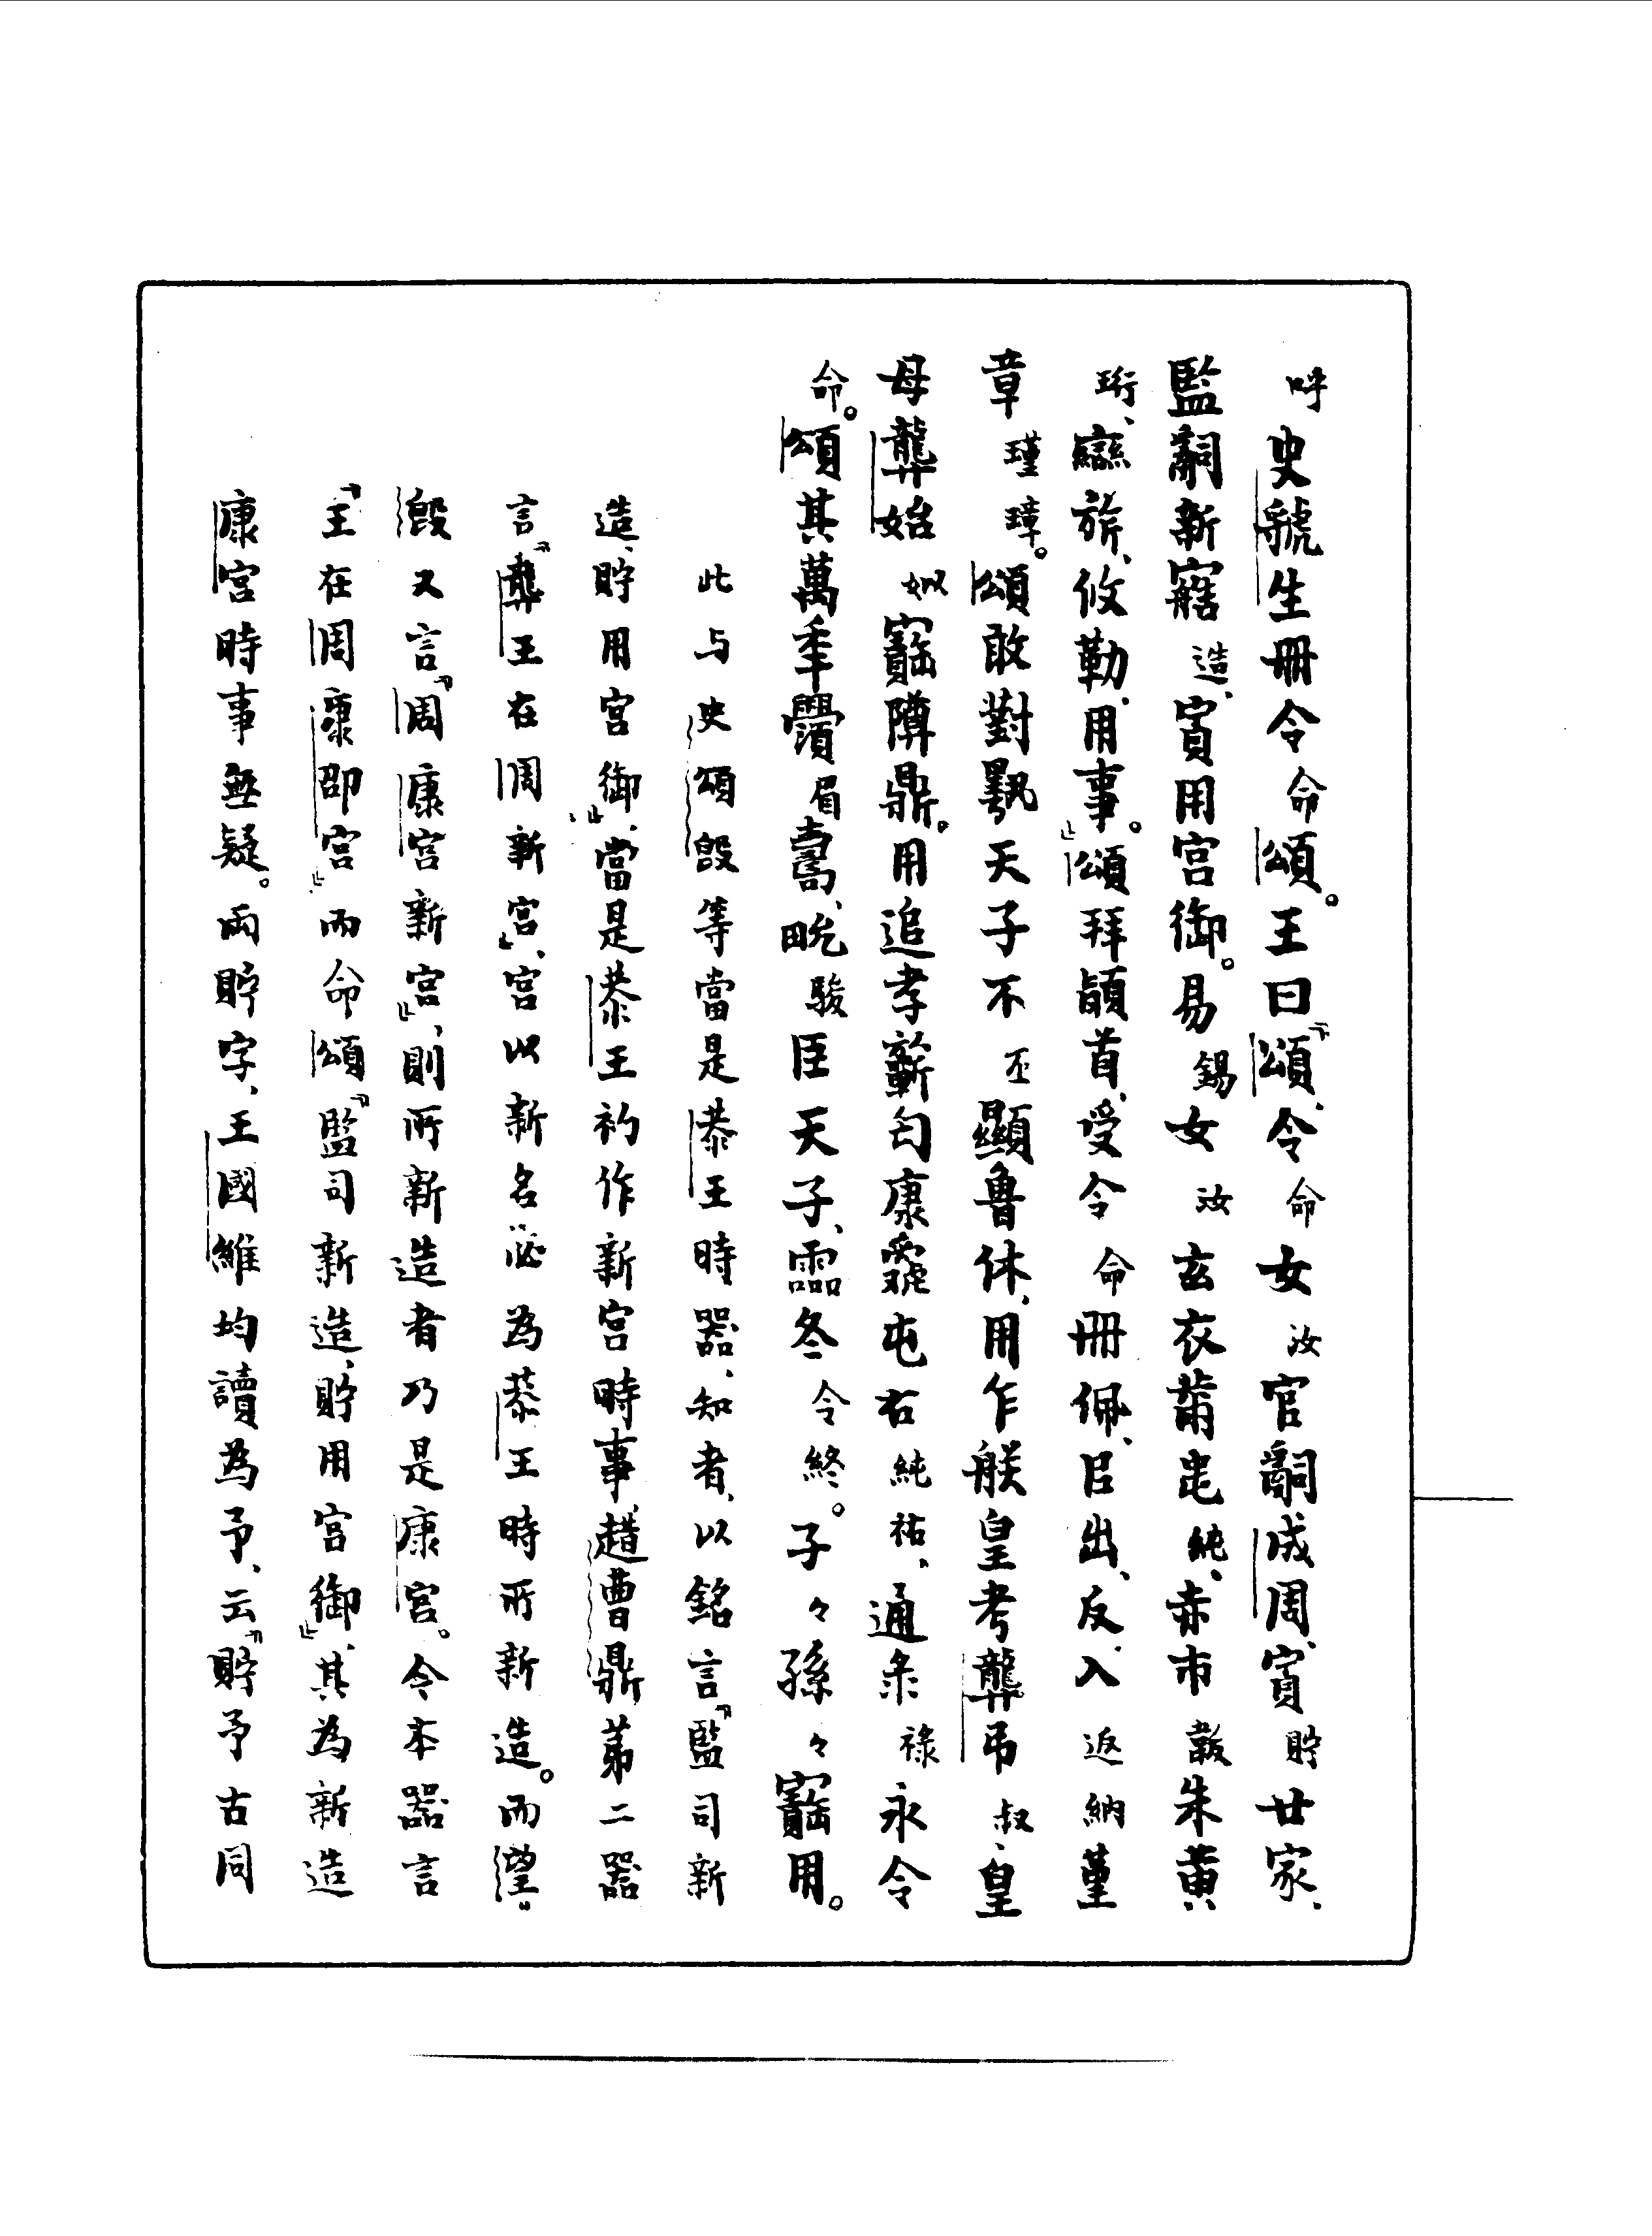 呼史虢生冊令命頌。王曰『頌、令命女汝官𤔲成周、貯廿家、
監𤔲新造、用宮御。易錫女汝玄衣黹屯純、赤巿韍朱黃
珩、䜌旂、攸勒、用事。』頌拜䭫首、受令命冊佩、㠯出、反、入返納堇
章瑾璋。頌敢對揚天子不丕顯魯休、用乍朕皇考龔弔叔、皇
母龔始姒寶䵼鼎。用追孝祈匄康屯右純祐、通彔祿永令
命。頌其萬年眉壽、畯駿臣天子、霝冬令終。子々孫々寶用。
此与史頌𣪘等當是恭王時器、知者、以銘言『監司新
造、貯用宮御』、當是恭王初作新宮時事、趞曹鼎第二器
言『龏王在周新宮』、宮以新名必為恭王時所新造。而望
𣪘又言『周康宮新宮』、則所新造者乃是康宮。今本器言
『王在周康卲宮』而命頌『監司新造、貯用宮御』、其為新造
康宮時事無疑。兩貯字、王國維均讀為予、云『貯予古同